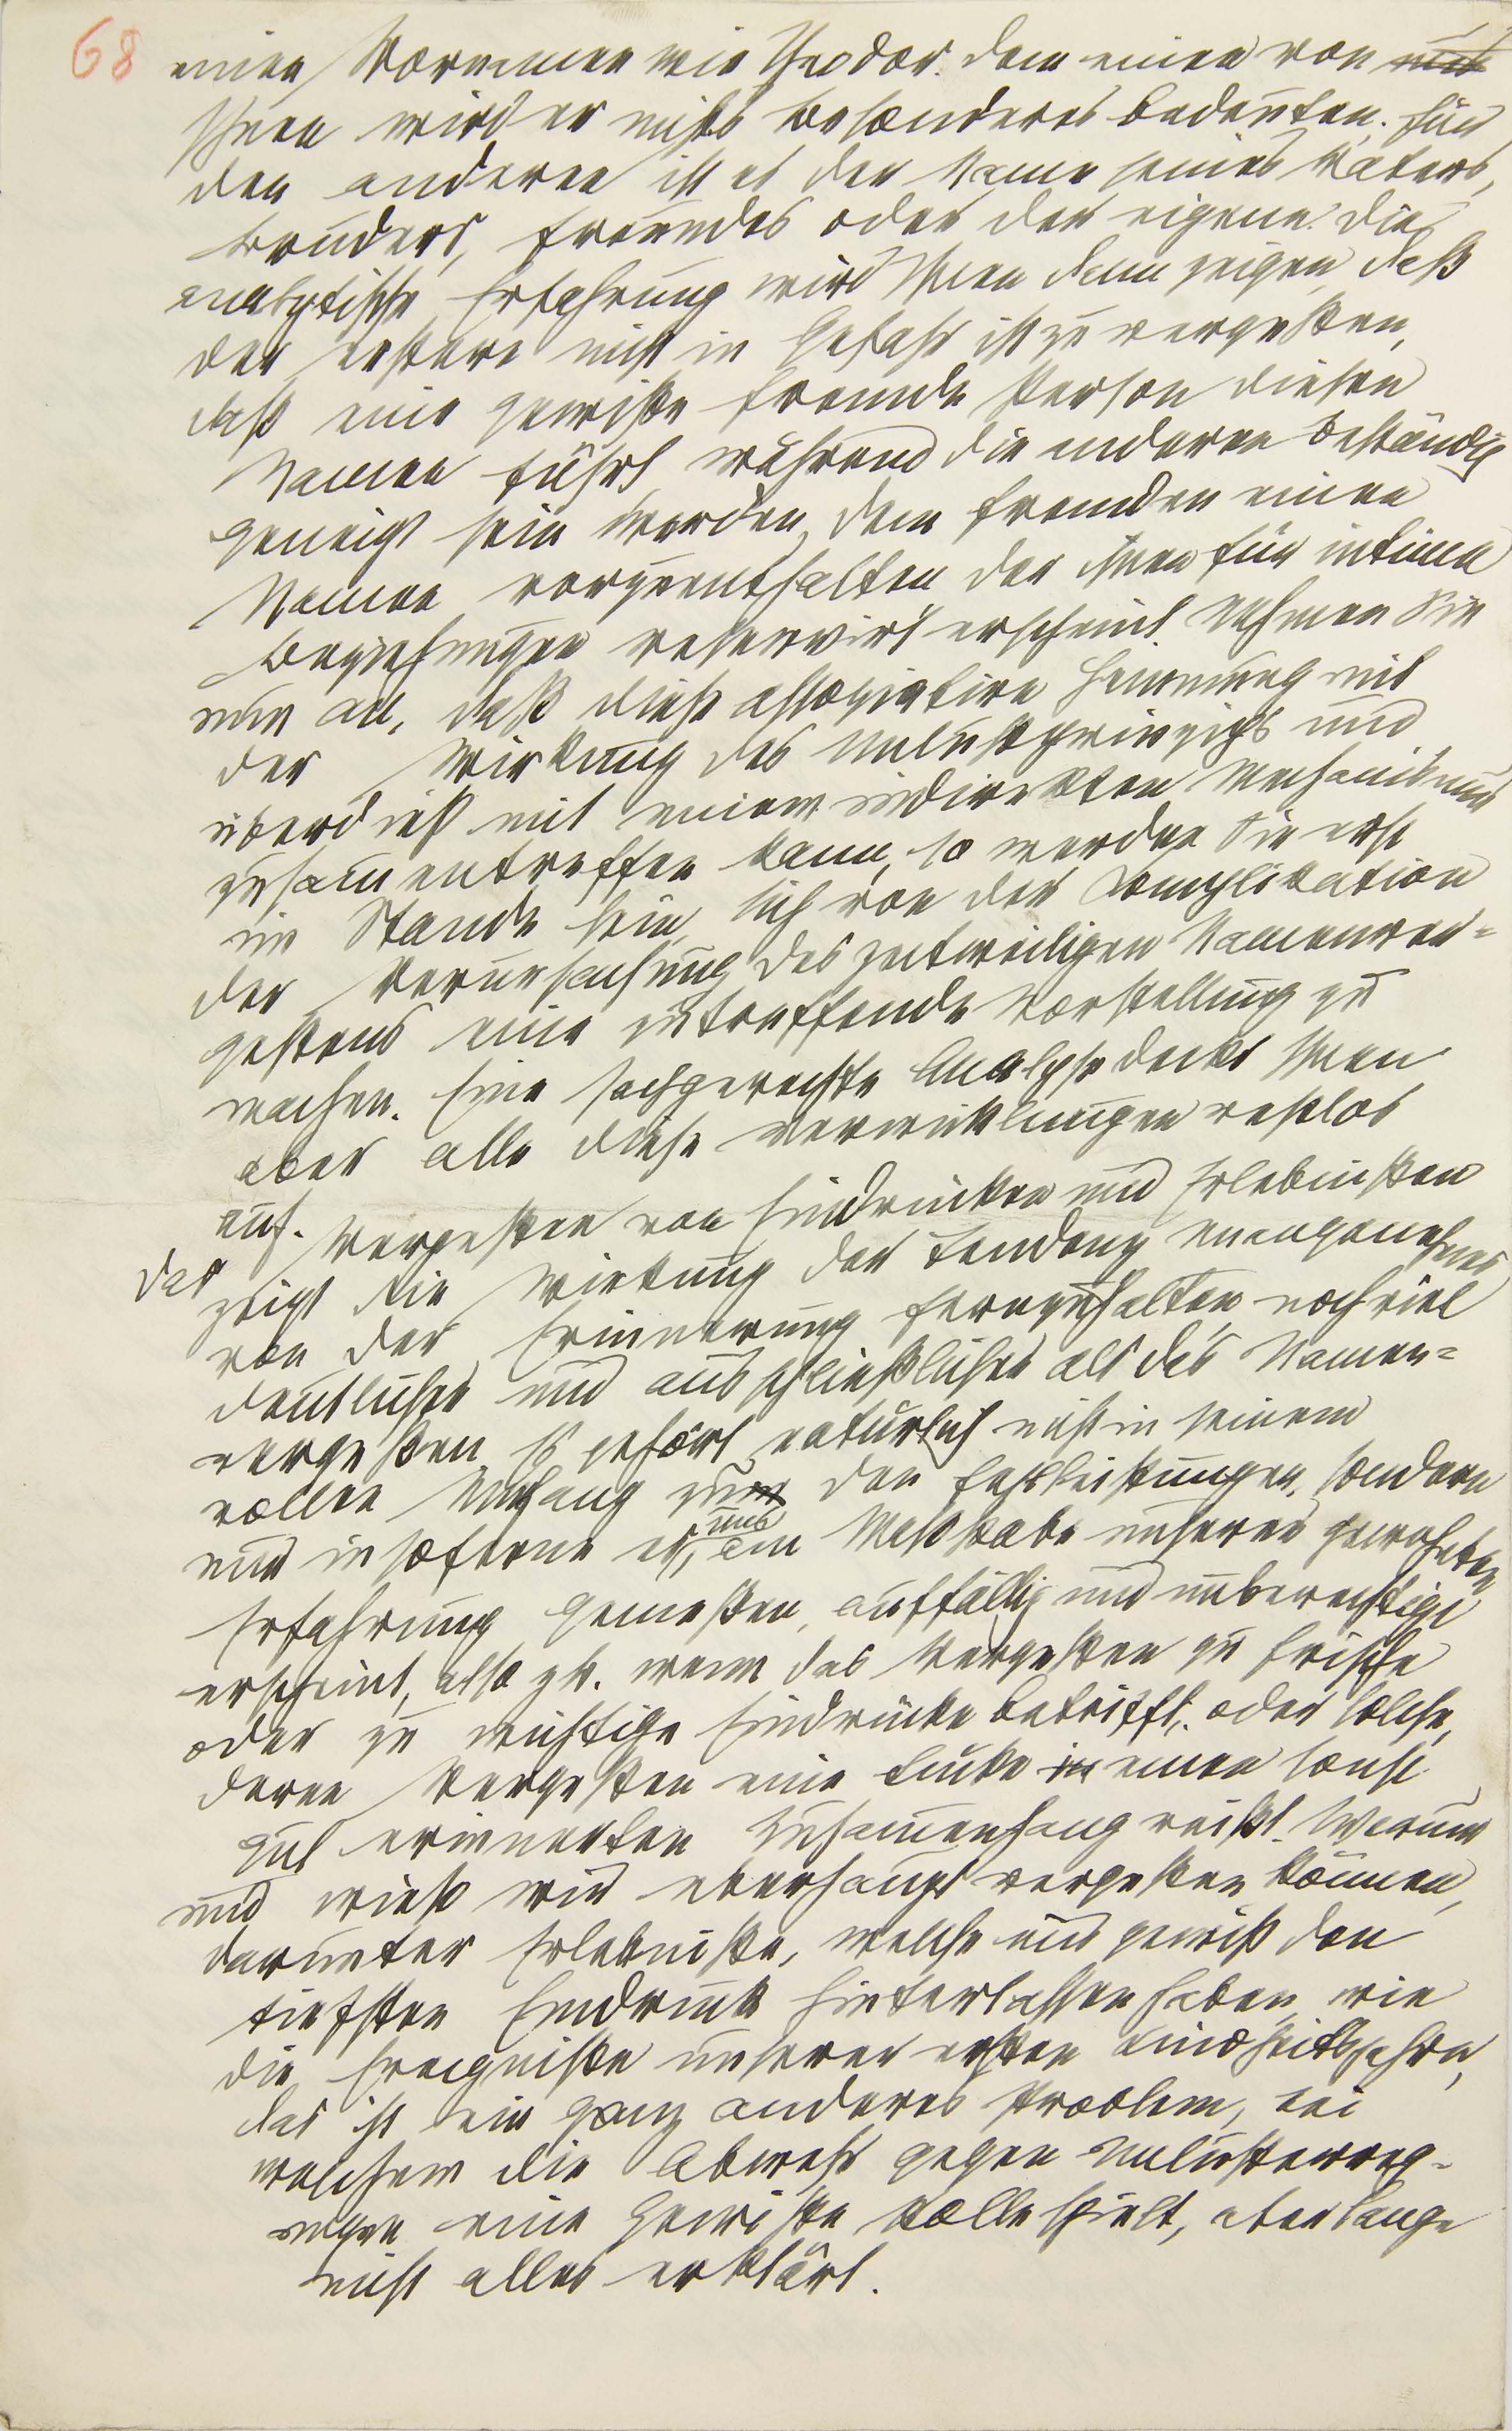 68 einen Vornamen wie Theodor. Dem einen von
Ihnen wird er nichts Besonderes bedeuten. Für
den anderen ist es der Name seines Vaters,
Bruders, Freundes oder der eigene. Die
analytische Erfahrung wird Ihnen dann zeigen, daß
der erstere nicht in Gefahr ist zu vergeßen,
daß eine gewiße fremde Person diesen
Namen führt, während die anderen beständig
geneigt sein werden, dem Fremden einen
Namen vorzuenthalten der ihnen für intime
Beziehungen reservirt erscheint. Nehmen Sie
nun an, daß diese assoziative Hemmung mit
der Wirkung des Unlustprinzips und
überdieß mit einem indirekten Mechanismus
zusamentreffen kann, so werden Sie erst
im Stande sein, sich von der Complikation
der Verursachung des zeitweiligen Namenver=
geßens eine zutreffende Vorstellung zu
machen. Eine sachgerechte Analyse deckt Ihnen
aber alle diese Verwicklungen restlos
auf.
Das Vergeßen von Eindrücken und Erlebnißen
zeigt die Wirkung der Tendenz unangenehmes
von der Erinnerung fernzuhalten noch viel
deutlicher und ausschließlicher als das Namen=
vergeßen. Es gehört natürlich nicht in seinem
vollen Umfang zu den Fehlleistungen, sondern
nur in soferne es, uns am Maßstabe unserer gewohnten
Erfahrung gemeßen, auffällig und unberechtigt
erscheint, also zB. wenn das Vergeßen zu frische
oder zu wichtige Eindrücke betrifft, oder solche,
deren Vergeßen eine Lücke in einen sonst
gut erinnerten Zusammenhang reißt. Warum
und wieso wir überhaupt vergeßen können,
darunter Erlebniße, welche uns gewiß den
tiefsten Eindruck hinterlassen haben, wie
die Ereigniße unserer ersten Kindheitsjahre,
das ist ein ganz anderes Problem, bei
welchem die Abwehr gegen Unlusterreg-
ungen eine gewiße Rolle spielt, aber lange
nicht alles erklärt.